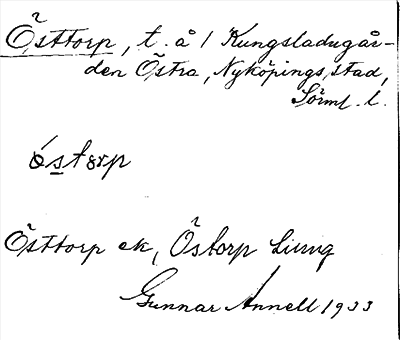 Östtorp, t. å 1 Kungsladugår-
den Östra, Nyköpings stad,
Sörml. l.
östorp
Östtorp ek, Östorp
Gunnar Annell 1933